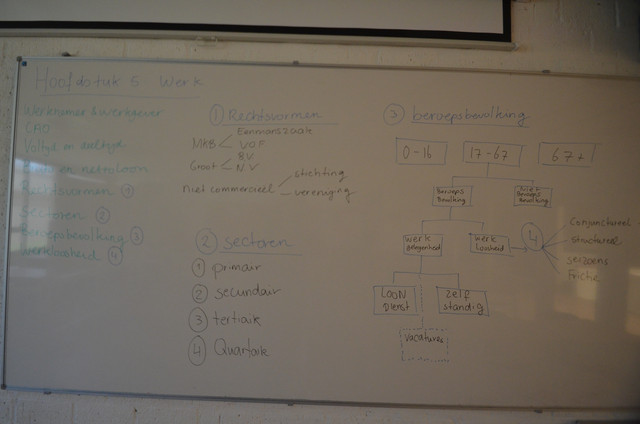 Hoofdstuk 5 Werk
Werknemer & werkgever
CAO
Voltijd en deeltijd
Bruto en netto loon
Rechtsvormen ①
Sectoren ②
Beroepsbevolking ③
Werkloosheid ④
① Rechtsvormen
Eenmanszaak
MKB < VOF
BV
Groot < N.V
stichting
niet commercieel
vereniging
② sectoren
① primair
② secundair
③ tertiair
④ Quartair
③ beroepsbevolking
0-16 17-67 67+
Beroeps Bevolking
Niet Beroeps Bevolking
werk gelegenheid
werk loosheid
4
Conjunctureel
structureel
seizoens
Frictie
LOON Dienst
Zelf standig
Vacatures